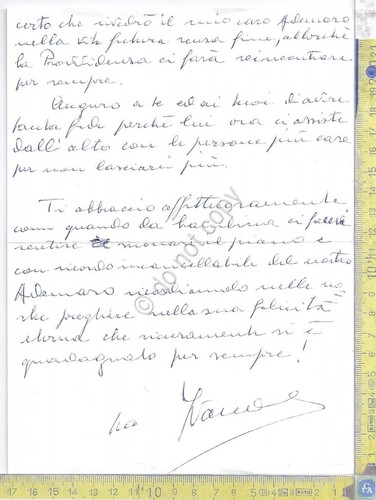 certo che rivedrò il mio caro Ademaro
nella vita futura senza fine, allorché
la Provvidenza ci farà reincontrare
per sempre.
Auguro a te ed ai tuoi di avere
tanta fede perché lui ora ci assiste
dall'alto con le persone più care
per non lasciarci più.
Ti abbraccio affettuosamente,
come quando da bambina ci facevi
sentire suonare il piano e
con ricordo incancellabile del nostro
Ademaro ricordiamolo nelle no
stre preghiere nella sua felicità
eterna che sicuramente si è
guadagnato per sempre!
tua
do not copy